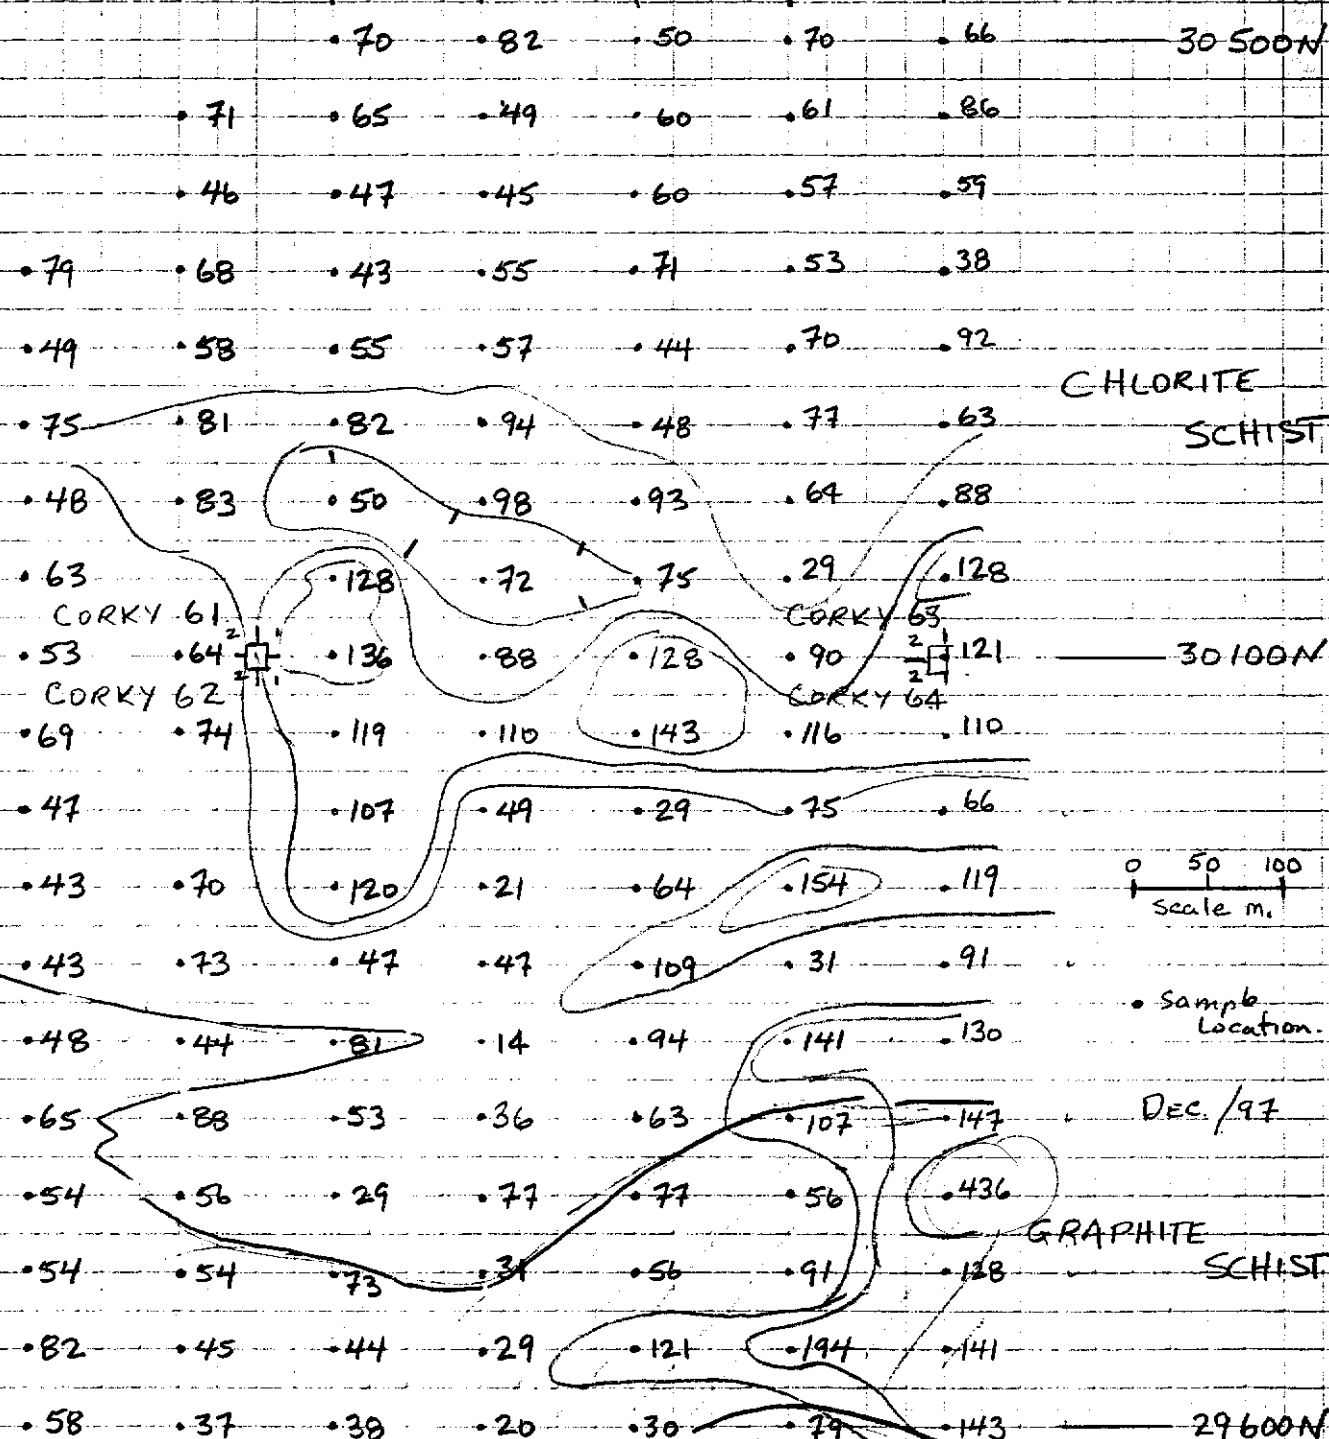 70 82 50 70 66 30 500N
71 65 49 60 61 86
46 47 45 60 57 59
79 68 43 55 71 53 38
49 58 55 57 44 70 92
CHLORITE
75 81 82 94 48 77 63 SCHIST
48 83 50 98 93 64 88
63 128 72 75 29 128
CORKY 61 CORKY 63
2 1 2 1
53 64 136 88 128 90 121 30100N
2 1 2
CORKY 62 CORKY 64
69 74 119 110 143 116 110
47 107 49 29 75 66
0 50 100
43 70 120 21 64 154 119
Scale m.
43 73 47 47 109 31 91
Sample
Location.
48 44 81 14 94 141 130
65 88 53 36 63 107 147 DEC. /97
54 56 29 77 77 56 436
GRAPHITE
54 54 73 31 56 91 128 SCHIST
82 45 44 29 121 194 141
58 37 38 20 30 79 143 29600N